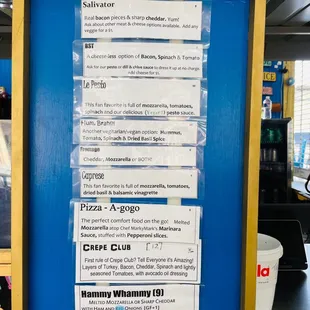 Salivator
Real bacon pieces & sharp cheddar, Yum!
Ask about other meat & cheese options available. Add any
veggie for a $1.
BST
A cheese-less option of Bacon, Spinach & Tomato
Ask for our pesto or dill & chive sauce to dress it up at no charge.
Add cheese for $1.
Le Pesto
This fan favorite is full of mozzarella, tomatoes,
spinach and our delicious pesto sauce.
Hum, Brahm
Another vegitarian/vegan option: Hummus,
Tomato, Spinach & Dried Basil Spice
Fromage
Cheddar, Mozzarella or BOTH!
Caprese
This fan favorite is full of mozzarella, tomatoes,
dried basil & balsamic vinagrette
Pizza - A-gogo
The perfect comfort food on the go! Melted
Mozzarella atop Chef MarkyMark's Marinara
Sauce, stuffed with Pepperoni slices.
CREPE CLUB [12]
First rule of Crepe Club? Tell Everyone it's Amazing!
Layers of Turkey, Bacon, Cheddar, Spinach and lightly
seasoned Tomato, with avocado oil dressing
HAMMY WHAMMY (9)
MELTED MOZZARELLA OR SHARP CHEDDAR
WITH HAM AND ONIONS [GF+1]
la